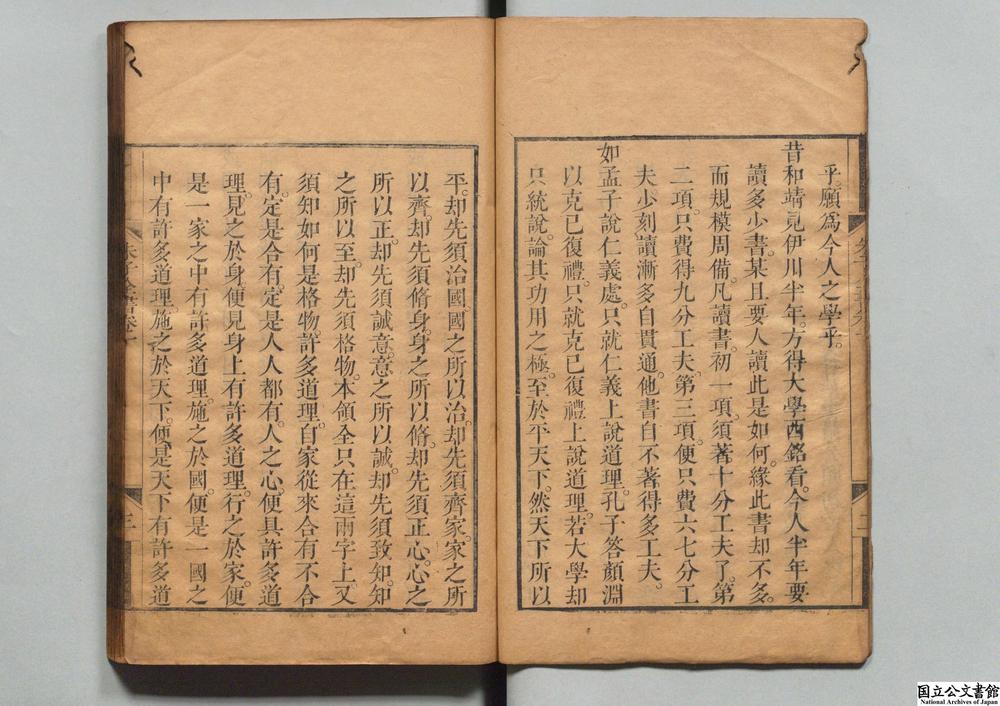 乎願為今人之學乎。
昔和靖見伊川半年方得大學西銘看。今人半年要
讀多少書。某且要人讀此是如何。緣此書却不多。
而規模周備。凡讀書初一項須著十分工夫了。第
二項只費得九分工夫。第三項便只費六七分工
夫。少刻讀漸多自貫通。他書自不著得多工夫。
如孟子說仁義處。只就仁義上說道理。孔子答顏淵
以克已復禮。只就克已復禮上說道理。若大學却
只統說。論其功用之極。至於平天下。然天下所以
平。却先須治國。國之所以治。却先須齊家。家之所
以齊。却先須脩身。身之所以脩。却先須正心。心之
所以正。却先須誠意。意之所以誠。却先須致知。知
之所以至。却先須格物。本領全只在這兩字上。又
須知如何是格物。許多道理自家從來合有不合
有。定是合有。定是人人都有。人之心便具許多道
理。見之於身便見身上有許多道理。行之於家。便
是一家之中有許多道理。施之於國。便是一國之
中有許多道理。施之於天下。便是天下有許多道
二
三
国立公文書館
National Archives of Japan